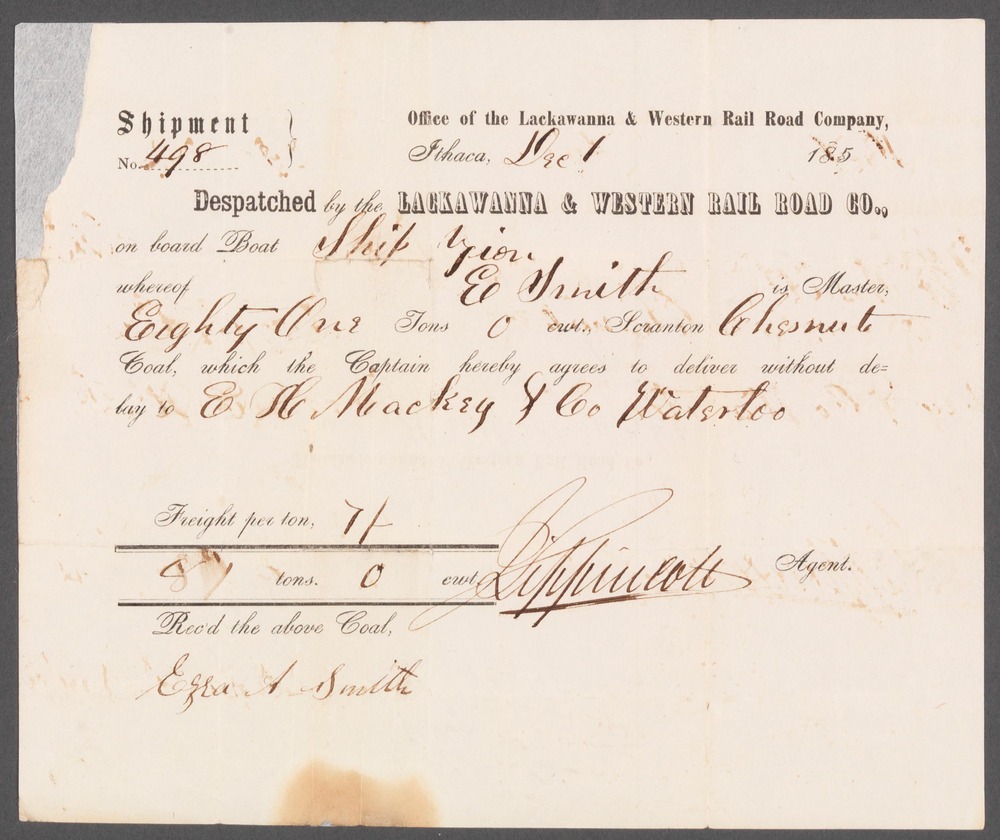 Shipment
No. 498
Office of the Lackawanna & Western Rail Road Company,
Ithaca, Dec 1 185
Despatched by the LACKAWANNA & WESTERN RAIL ROAD CO.,
on board Boat Ship Zion
whereof E Smith is Master,
Eighty One Tons 0 cwt., Scranton Chesnut
Coal, which the Captain hereby agrees to deliver without de=
lay to E H Mackey & Co Waterloo
Freight per ton, 7/-
81 tons. 0 cwt.
Lippincott Agent.
Rec'd the above Coal,
Ezra A Smith